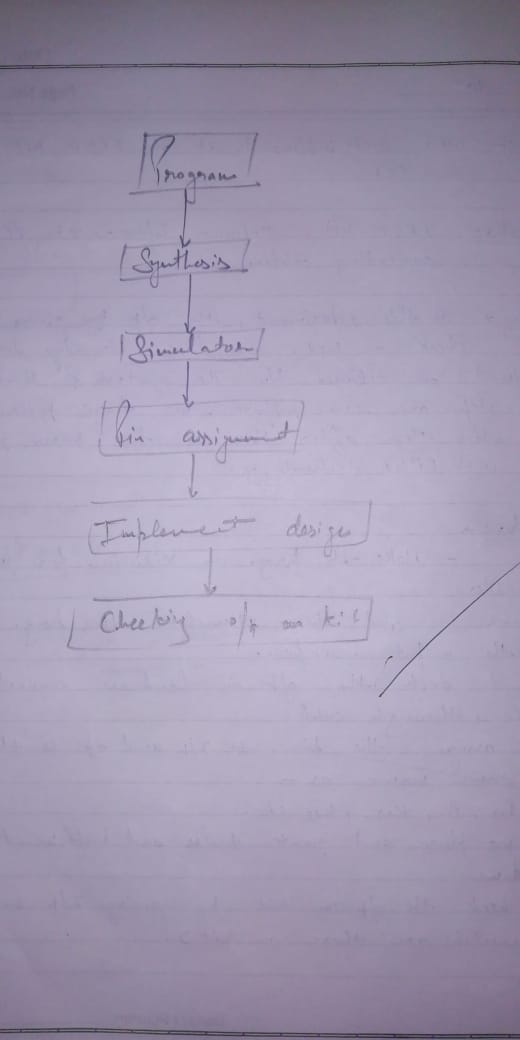 Program
Synthesis
Simulator
Pin assignment
Implement design
Checking o/p on kit